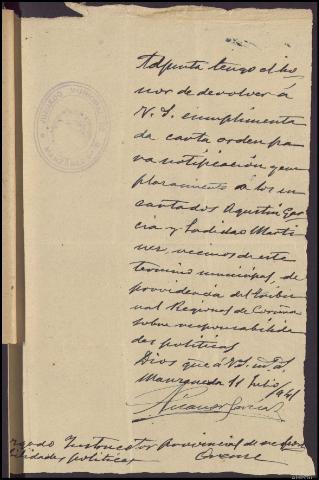 JUZGADO MUNICIPAL
MANZANEDA
Adjunta tengo el ho
nor de devolver á
V. S. cumplimenta
da carta orden pa
ra notificación y em
plazamiento de los en
cartados Agustín Gar
cía y Ladislao Marti
nez, vecinos de este
termino municipal, de
providencia del Tribu
nal Regional de Coruña
sobre responsabilida
des políticas
Dios que á V. S. m. a.
Manzaneda 11 Julio/941
Nicanor García
Juzgado Instructor provincial de respon
bilidades políticas Orense